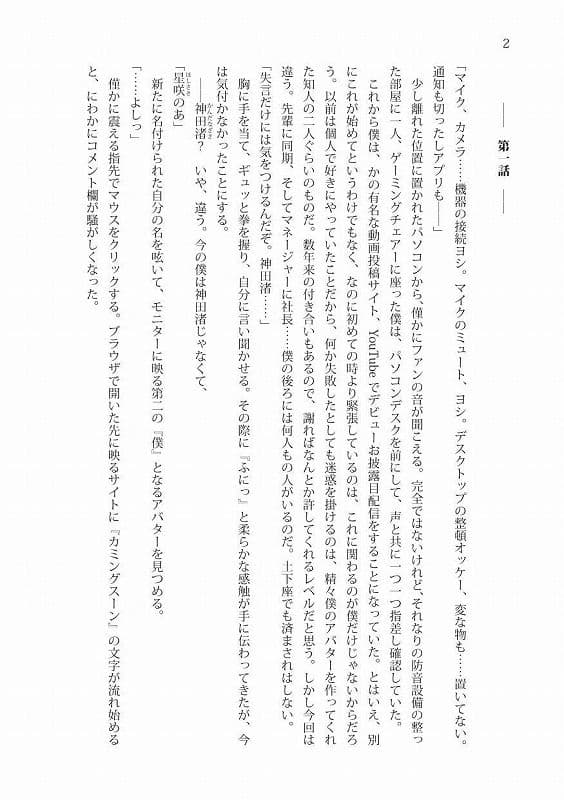 2
―― 第一話 ――
「マイク、カメラ……機器の接続ヨシ。マイクのミュート、ヨシ。デスクトップの整頓オッケー、変な物も……置いてない。
通知も切ったしアプリも――」
少し離れた位置に置かれたパソコンから、僅かにファンの音が聞こえる。完全ではないけれど、それなりの防音設備の整っ
た部屋に一人、ゲーミングチェアーに座った僕は、パソコンデスクを前にして、声と共に一つ一つ指差し確認していた。
これから僕は、かの有名な動画投稿サイト、YouTubeでデビューお披露目配信をすることになっていた。とはいえ、別
にこれが始めてというわけでもなく、なのに初めての時より緊張しているのは、これに関わるのが僕だけじゃないからだろ
う。以前は個人で好きにやっていたことだから、何か失敗したとしても迷惑を掛けるのは、精々僕のアバターを作ってくれ
た知人の二人ぐらいのものだ。数年来の付き合いもあるので、謝ればなんとか許してくれるレベルだと思う。しかし今回は
違う。先輩に同期、そしてマネージャーに社長……僕の後ろには何人もの人がいるのだ。土下座でも済まされはしない。
「失言だけには気をつけるんだぞ。神田渚……」
胸に手を当て、ギュッと拳を握り、自分に言い聞かせる。その際に『ふにっ』と柔らかな感触が手に伝わってきたが、今
は気付かなかったことにする。
――神田渚？　いや、違う。今の僕は神田渚じゃなくて、
かんだなぎさ
「星咲のあ」
ほしさき
新たに名付けられた自分の名を呟いて、モニターに映る第二の『僕』となるアバターを見つめる。
「……よしっ」
僅かに震える指先でマウスをクリックする。ブラウザで開いた先に映るサイトに『カミングスーン』の文字が流れ始める
と、にわかにコメント欄が騒がしくなった。